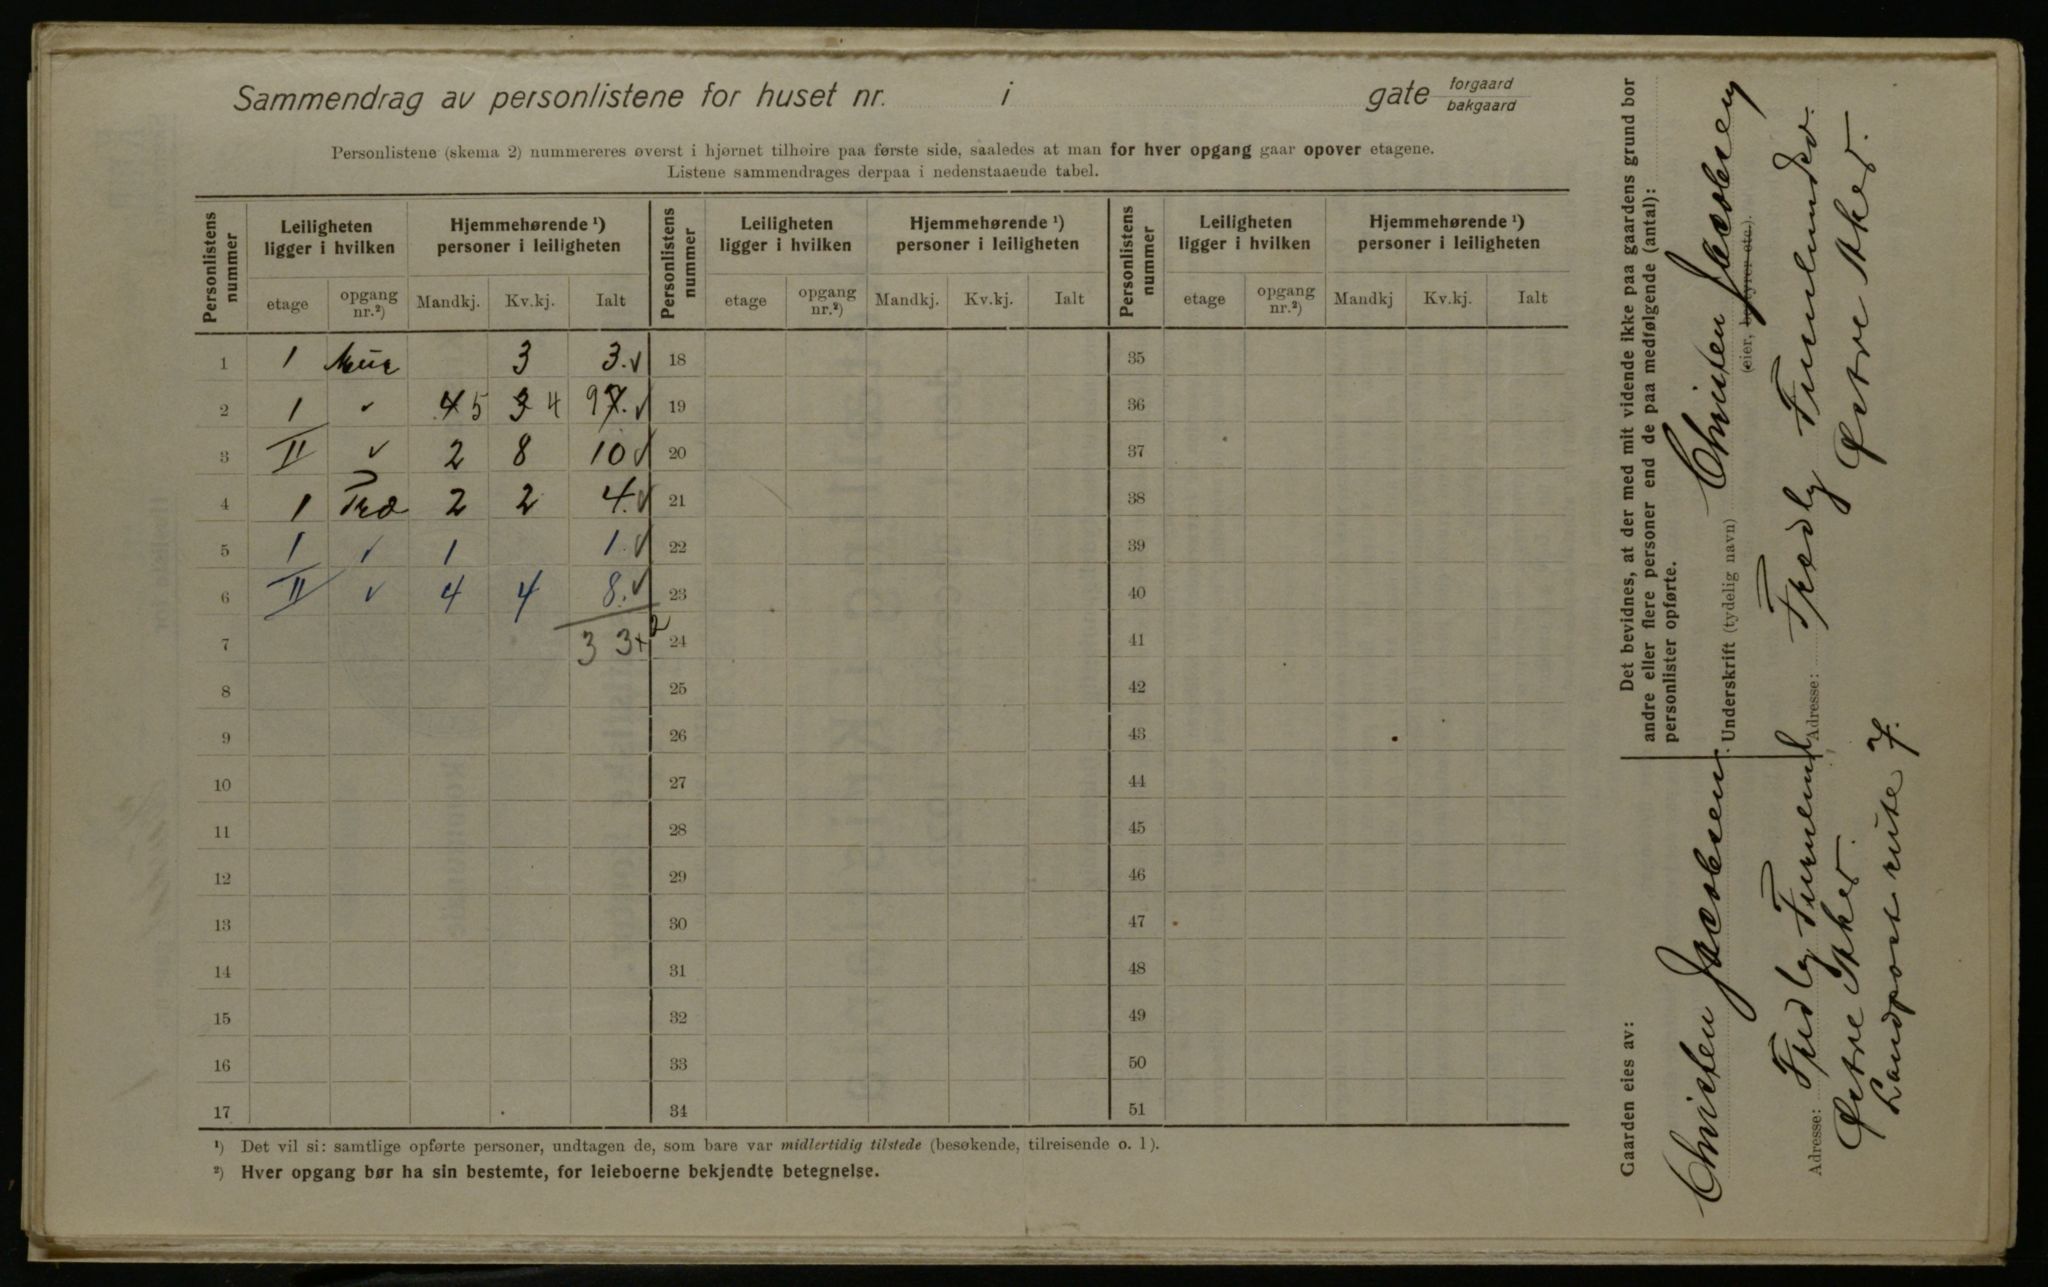 Sammendrag av personlistene for huset nr. i gate forgaard
bakgaard
Personlistene (skema 2) nummereres øverst i hjørnet tilhøire paa første side, saaledes at man for hver opgang gaar opover etagene.
Listene sammendrages derpaa i nedenstaaende tabel.
Personlistens nummer
Leiligheten ligger i hvilken
Hjemmehørende ¹) personer i leiligheten
Personlistens nummer
Leiligheten ligger i hvilken
Hjemmehørende ¹) personer i leiligheten
Personlistens nummer
Leiligheten ligger i hvilken
Hjemmehørende ¹) personer i leiligheten
etage opgang nr.²) Mandkj. Kv.kj. Ialt etage opgang nr.²) Mandkj. Kv.kj. Ialt etage opgang nr.²) Mandkj Kv.kj. Ialt
1 1 Mur 3 3. ✓ 18 35
2 1 ✓ 4 5 3 4 9 7. ✓ 19 36
3 II ✓ 2 8 10 ✓ 20 37
4 1 Træ 2 2 4. ✓ 21 38
5 1 ✓ 1 1. ✓ 22 39
6 II ✓ 4 4 8. ✓ 23 40
7 33+2 24 41
8 25 42
9 26 43
10 27 44
11 28 45
12 29 46
13 30 47
14 31 48
15 32 49
16 33 50
17 34 51
¹) Det vil si: samtlige opførte personer, undtagen de, som bare var midlertidig tilstede (besøkende, tilreisende o. l).
²) Hver opgang bør ha sin bestemte, for leieboerne bekjendte betegnelse.
Gaarden eies av:
Christen Jacobsen
Adresse: Furulund
Østre Aker.
Landpost rute 7.
Det bevidnes, at der med mit vidende ikke paa gaardens grund bor
andre eller flere personer end de paa medfølgende (antal):
personlister opførte.
Underskrift (tydelig navn) Christen Jacobsen
(eier, bestyrer etc.).
Adresse: Furulund
Østre Aker.